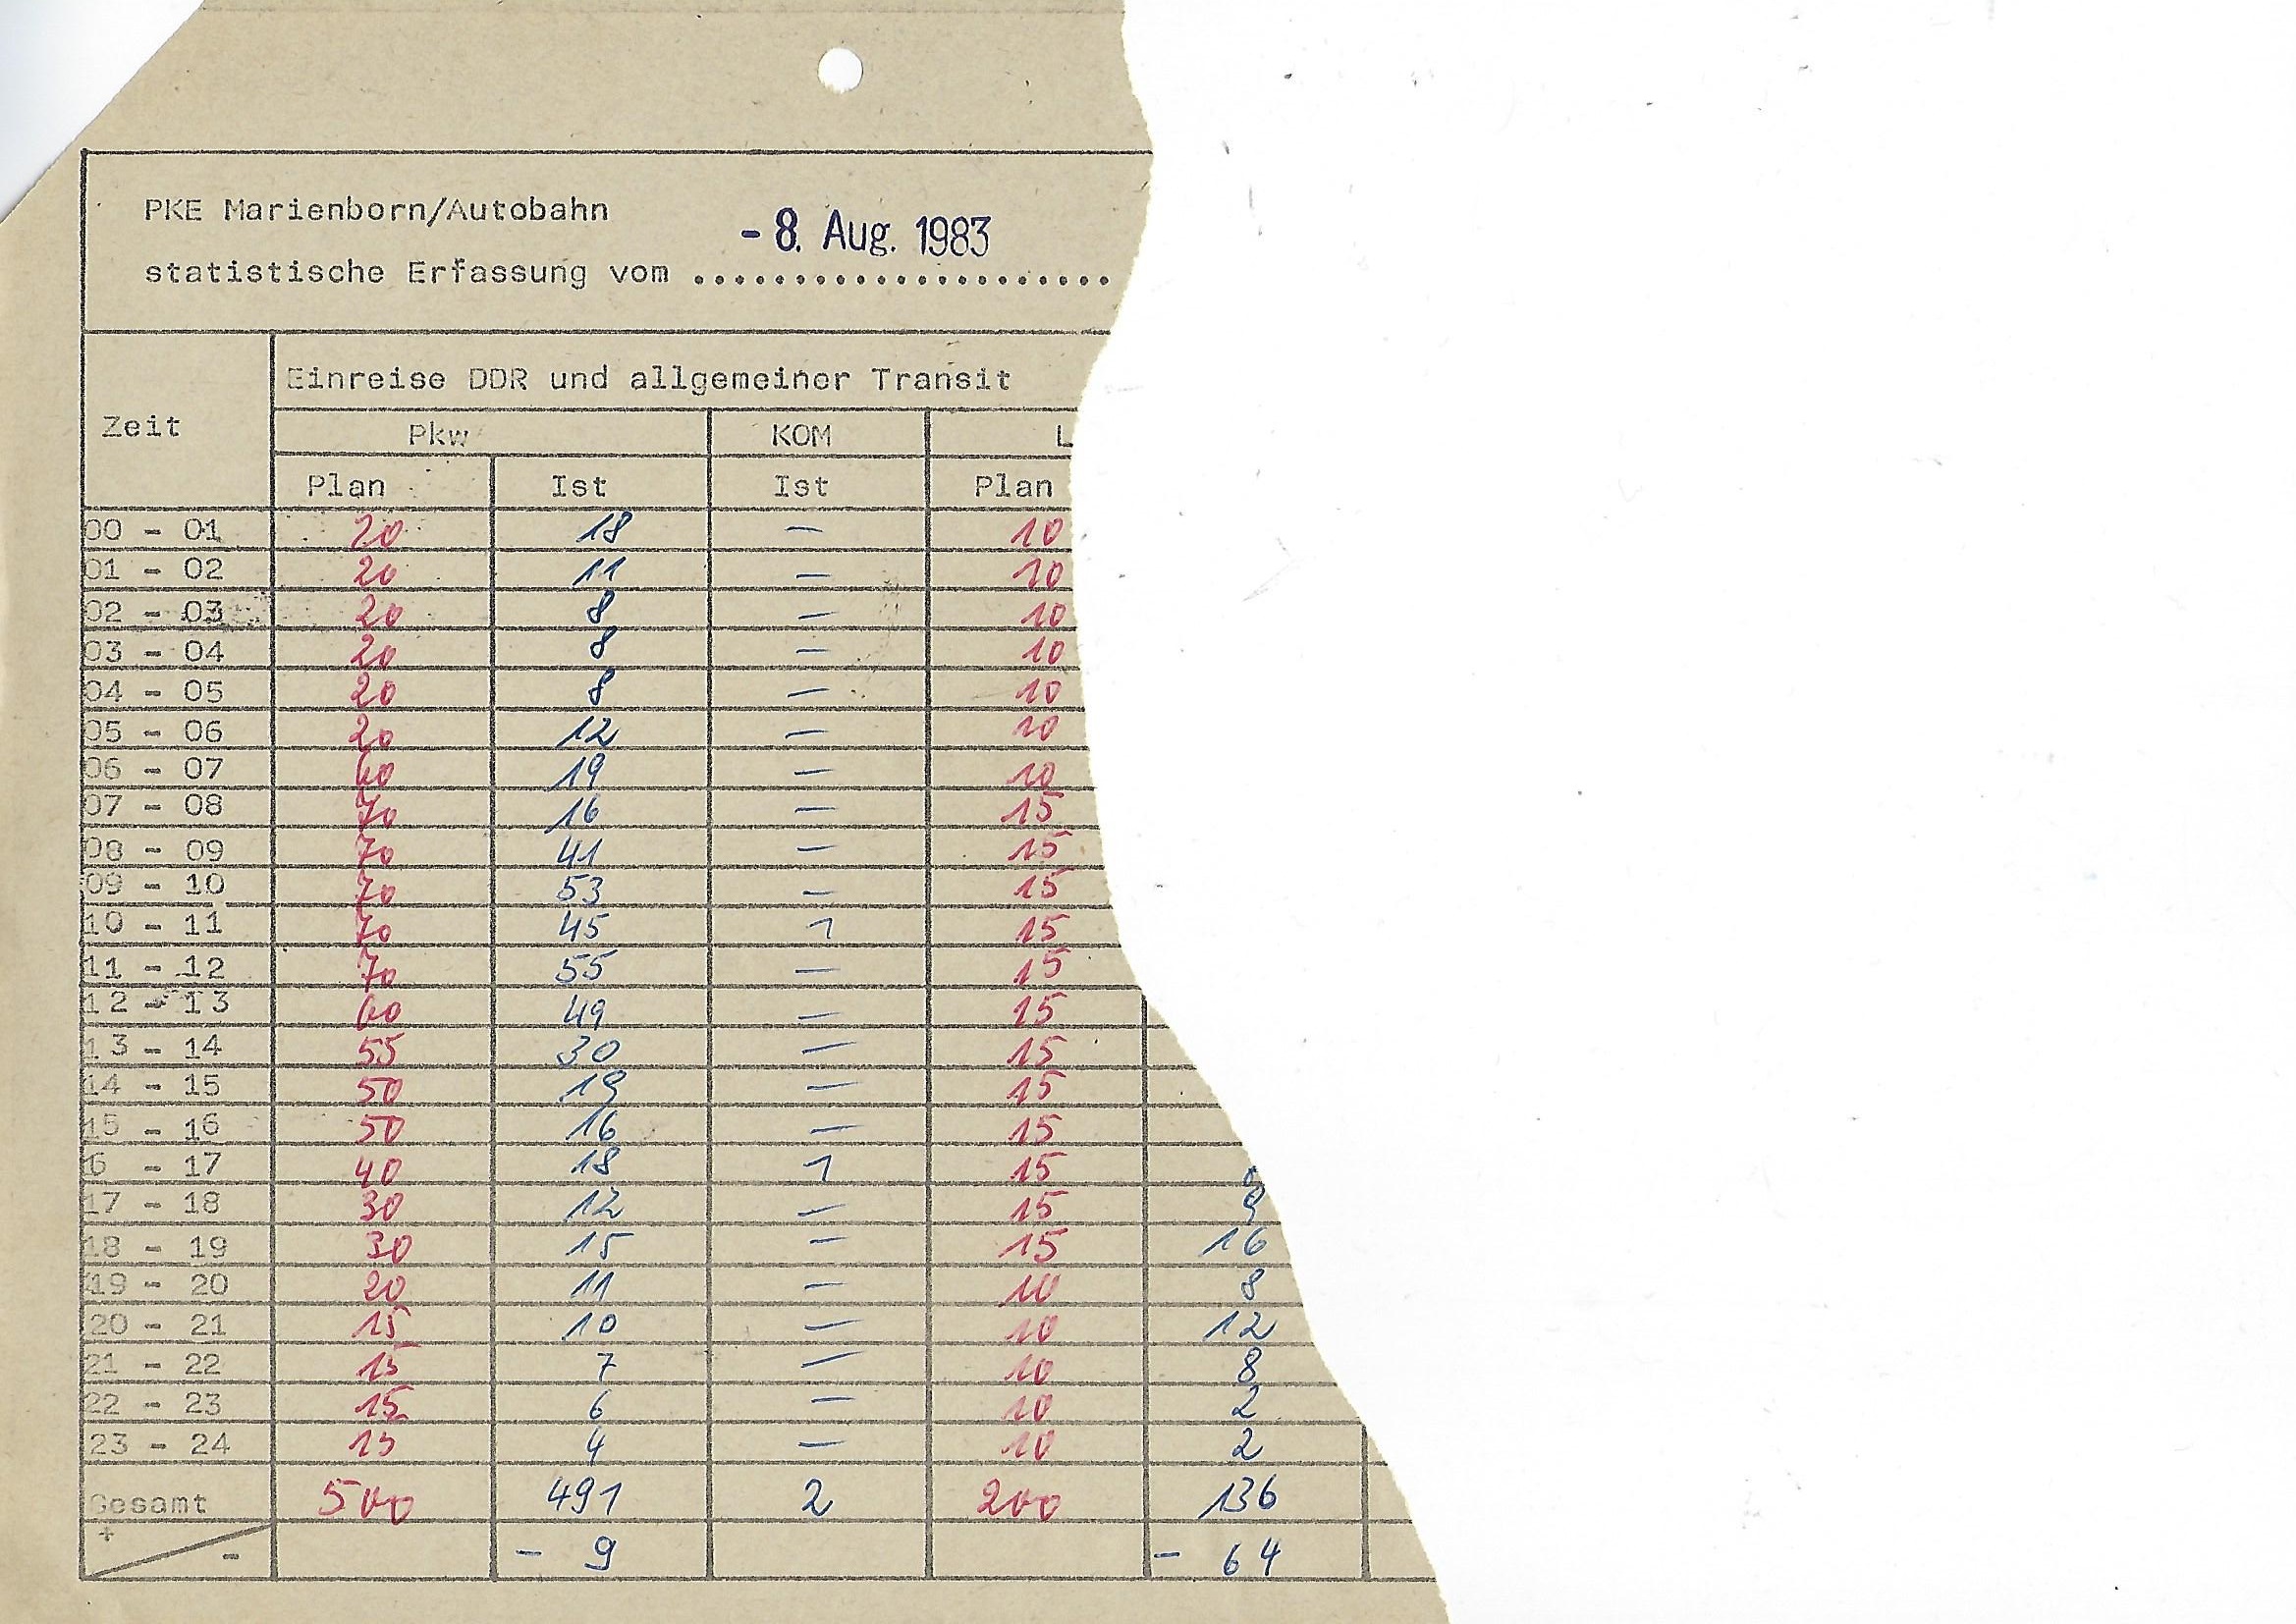 PKE Marienborn/Autobahn
- 8. Aug. 1983
statistische Erfassung vom .....................
Einreise DDR und allgemeiner Transit
Zeit
Pkw KOM L
Plan Ist Ist Plan
00 - 01 20 18 — 10
01 - 02 20 11 — 10
02 - 03 20 8 — 10
03 - 04 20 8 — 10
04 - 05 20 8 — 10
05 - 06 20 12 — 10
06 - 07 60 19 — 10
07 - 08 70 16 — 15
08 - 09 70 41 — 15
09 - 10 70 53 — 15
10 - 11 70 45 1 15
11 - 12 70 55 — 15
12 - 13 60 49 — 15
13 - 14 55 30 — 15
14 - 15 50 19 — 15
15 - 16 50 16 — 15
6 - 17 40 18 1 15
17 - 18 30 12 — 15 9
18 - 19 30 15 — 15 16
19 - 20 20 11 — 10 8
20 - 21 15 10 — 10 12
21 - 22 15 7 — 10 8
22 - 23 15 6 — 10 2
23 - 24 15 4 — 10 2
Gesamt 500 491 2 200 136
+ - - 9 - 64